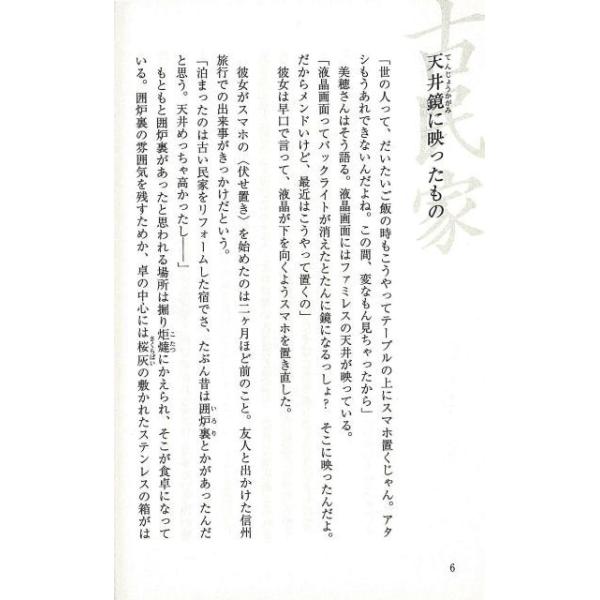 古民家
天井鏡に映ったもの
てんじょうかがみ
「世の人って、だいたいご飯の時もこうやってテーブルの上にスマホ置くじゃん。アタ
シもうあれできないんだよね。この間、変なもん見ちゃったから」
美穂さんはそう語る。液晶画面にはファミレスの天井が映っている。
「液晶画面ってバックライトが消えたとたんに鏡になるっしょ? そこに映ったんだよ。
だからメンドいけど、最近はこうやって置くの」
彼女は早口で言って、液晶が下を向くようスマホを置き直した。
彼女がスマホの〈伏せ置き〉を始めたのは二ヶ月ほど前のこと。友人と出かけた信州
旅行での出来事がきっかけだという。
「泊まったのは古い民家をリフォームした宿でさ、たぶん昔は囲炉裏とかがあったんだ
いろり
と思う。天井めっちゃ高かったし――」
もともと囲炉裏があったと思われる場所は掘り炬燵にかえられ、そこが食卓になって
こたつ
いる。囲炉裏の雰囲気を残すためか、卓の中心には桜灰の敷かれたステンレスの箱がは
さくらばい
6